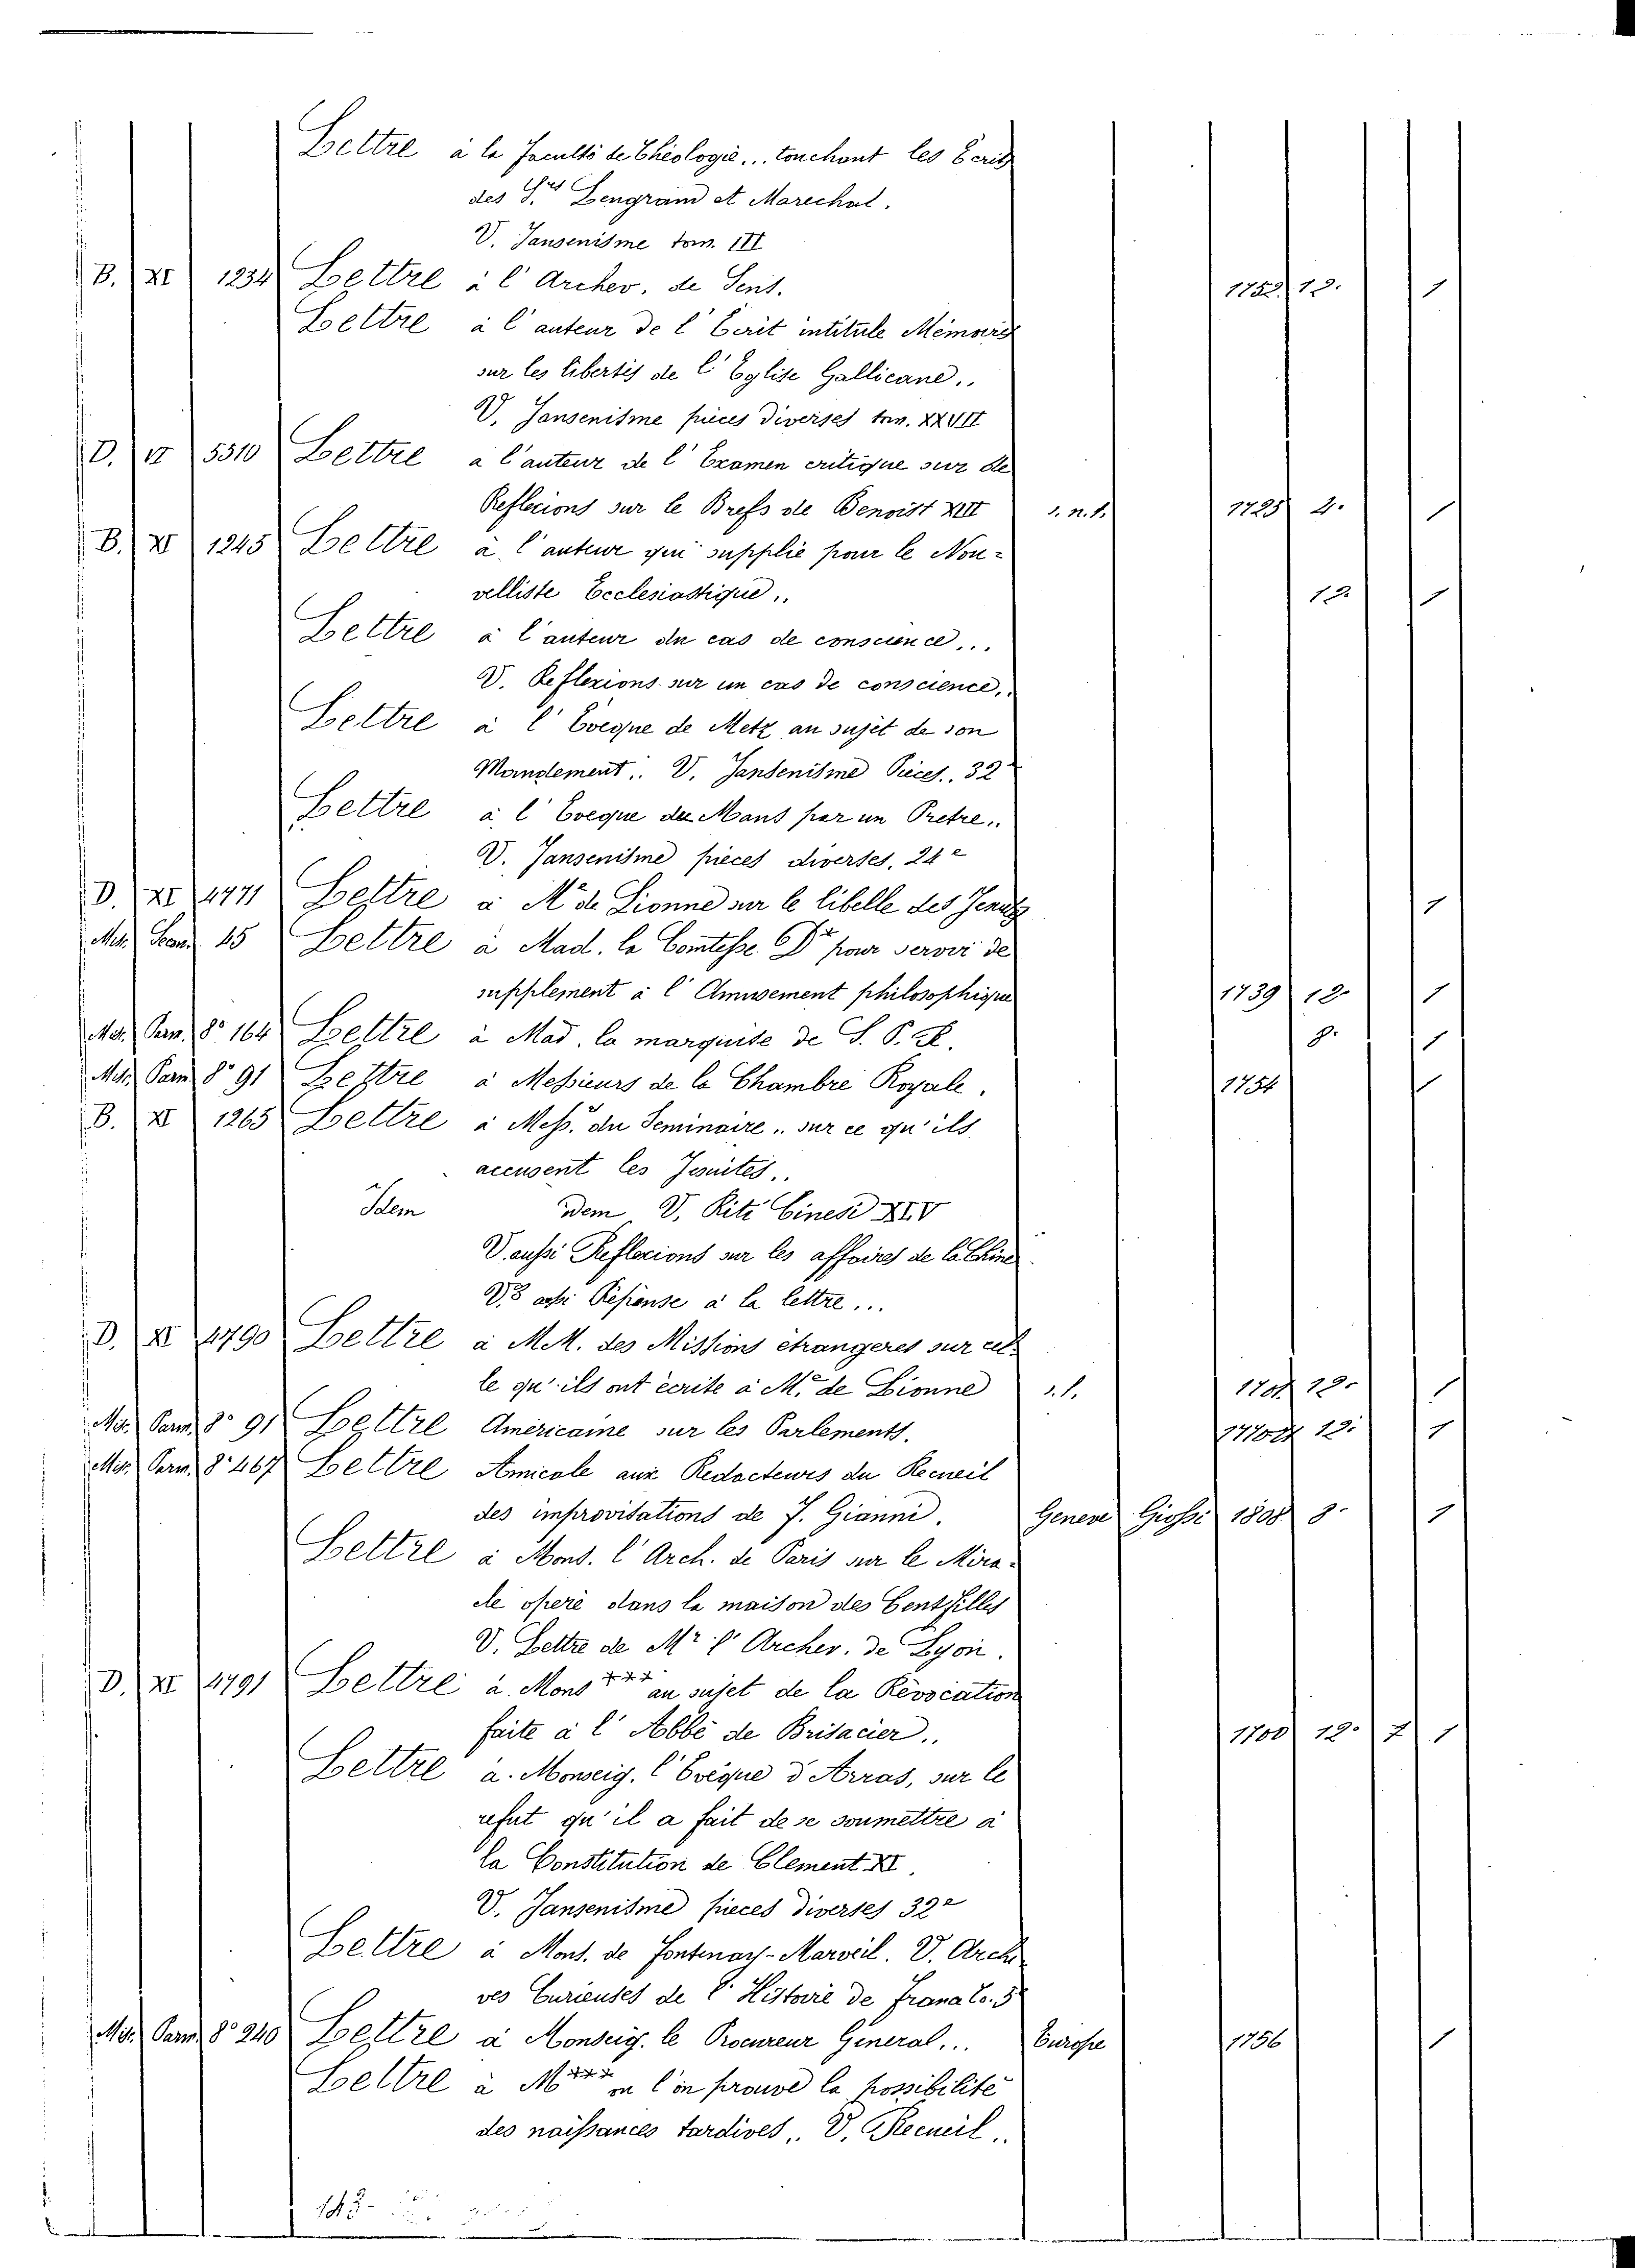 Lettre à la Faculté de Théologie... touchant les Ecrits
des Srs Lengrand et Marechal.
V. Jansenisme tom. III
B. XI 1234 Lettre à l'Archev. de Sens. 1752 12. 1
Lettre à l'auteur de l'Ecrit intitule Mémoires
sur les libertés de l'Eglise Gallicane..
V. Jansenisme pièces diverses tom. XXVII
D. VI 5310 Lettre a l'auteur de l'Examen critique sur de
Reflexions sur le Brefs de Benoist XIII s. n. t. 1725 4. 1
B. XI 1245 Lettre à l'auteur qui supplie pour le Nou-
velliste Ecclesiastique.. 12 1
Lettre à l'auteur du cas de conscience...
V. Reflexions sur un cas de conscience..
Lettre à l'Eveque de Metz au sujet de son
Mandement.. V. Jansenisme Pièces.. 32
Lettre à l'Eveque du Mans par un Pretre..
V. Jansenisme pieces diverses, 24e
D. XI 4771 Lettre à Mr de Lionne sur le libelle des Jesuites 1
Mis. 45 Lettre à Mad. la Comtesse D** pour servir de
supplement à l'Amusement philosophique 1739 12 1
Mis. Parm. 8º 164 Lettre à Mad. la marquise de S. P. R. 8. 1
Mis. Parm. 8º 91 Lettre à Messieurs de la Chambre Royale. 1754 1
B. XI 1265 Lettre à Mess. du Seminaire.. sur ce qu'ils
accusent les Jesuites..
Idem Idem V. Riti Cinesi XIV
V. aussi Reflexions sur les affaires de la Chine
V. aussi Réponse à la lettre...
D. XI 4790 Lettre à M.M. des Missions étrangeres sur cel-
le qu'ils ont écrite à M. de Lionne s.l. 12. 1
Mis. Parm. 8º 91 Lettre Américaine sur les Parlements. 12. 1
Mis. Parm. 8º 467 Lettre Amicale aux Redacteurs du Recueil
des improvisations de F. Gianni. Geneve Giossi 1808 8. 1
Lettre à Mons. l'Arch. de Paris sur le Mira-
cle operé dans la maison des Cent filles
V. Lettre de Mr l'Archev. de Lyon.
D. XI 4791 Lettre à Mons *** au sujet de la Révocation
faite à l'Abbé de Brisacier.. 1700 12. 7 1
Lettre à Monseig. l'Evêque d'Arras, sur le
refut qu'il a fait de se soumettre à
la Constitution de Clement XI.
V. Jansenisme pieces diverses 32e
Lettre à Mons. de Fontenay-Marveil. V. Archi
ves Curieuses de l'Historie de Franc. to. 5
Mis. Parm. 8º 240 Lettre à Monseig. le Procureur General... Europe 1756 1
Lettre à M*** ou l'on prouve la possibilité
des naissances tardives.. V. Recueil..